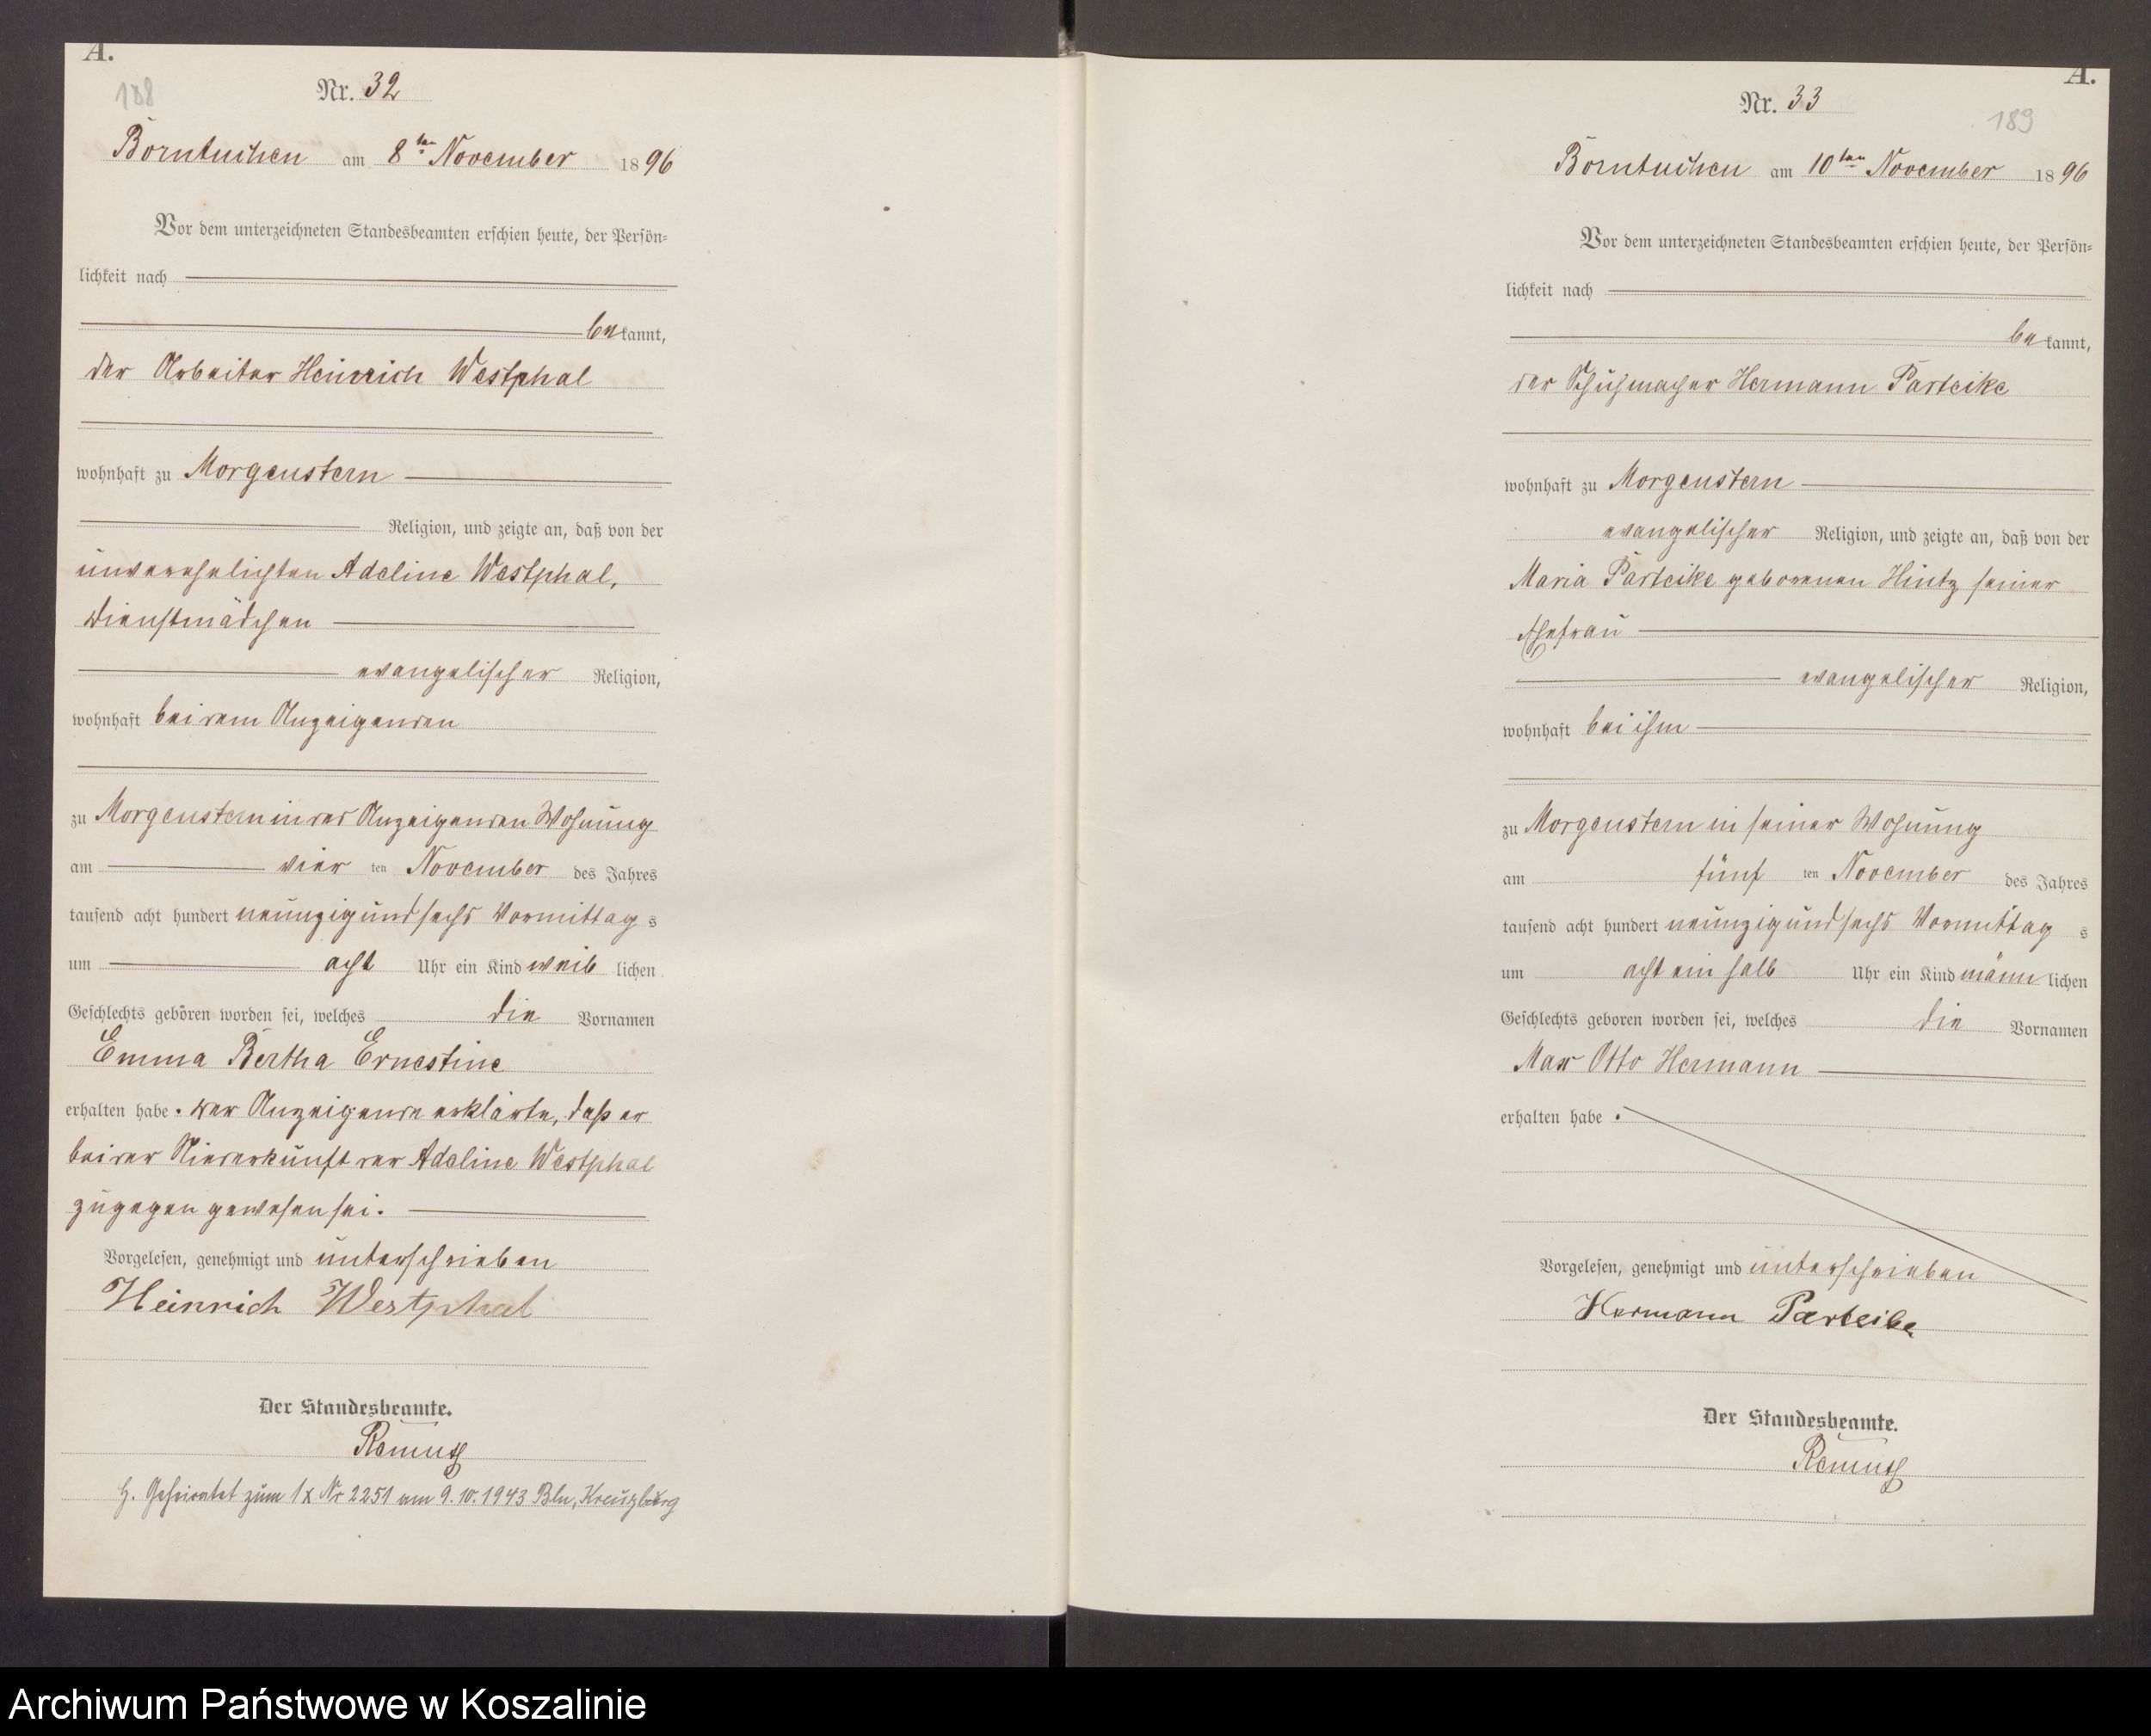 A.
188
Nr. 32
Borntuchen am 8ten November 1896
Vor dem unterzeichneten Standesbeamten erschien heute, der Persön-
lichkeit nach
bekannt,
der Arbeiter Heinrich Westphal
wohnhaft zu Morgenstern
Religion, und zeigte an, daß von der
unverehelichten Adeline Westphal,
Dienstmädchen
evangelischer Religion,
wohnhaft bei dem Anzeigenden
zu Morgenstern in des Anzeigenden Wohnung
am vier ten November des Jahres
tausend acht hundert neunzig und sechs Vormittags
um acht Uhr ein Kind weiblichen
Geschlechts geboren worden sei, welches die Vornamen
Emma Bertha Ernestine
erhalten habe. Der Anzeigende erklärte, daß er
bei der Niederkunft der Adeline Westphal
zugegen gewesen sei.
Vorgelesen, genehmigt und unterschrieben
Heinrich Westphal
Der Standesbeamte.
H. Geheiratet zum 1x Nr 2251 am 9.10.1943 Bln, Kreuzberg
A.
189
Nr. 33
Borntuchen am 10ten November 1896
Vor dem unterzeichneten Standesbeamten erschien heute, der Persön-
lichkeit nach
bekannt,
der Schuhmacher Hermann Parteike
wohnhaft zu Morgenstern
evangelischer Religion, und zeigte an, daß von der
Maria Parteike geborenen Hintz seiner
Ehefrau
evangelischer Religion,
wohnhaft bei ihm
zu Morgenstern in seiner Wohnung
am fünf ten November des Jahres
tausend acht hundert neunzig und sechs Vormittags
um acht ein halb Uhr ein Kind männlichen
Geschlechts geboren worden sei, welches die Vornamen
Max Otto Hermann
erhalten habe.
Vorgelesen, genehmigt und unterschrieben
Hermann Parteike
Der Standesbeamte.
Archiwum Państwowe w Koszalinie